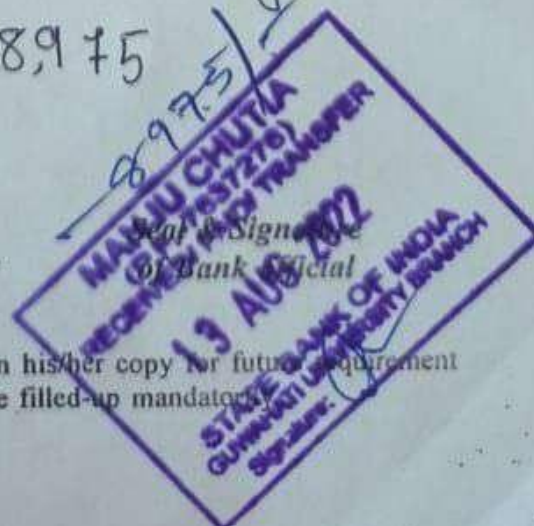 8,975
8975/
MANJU CHUTIA
7637276)
RECEIVED TRANSFER
Seal & Signature
of Bank Official
13 AUG 2022
STATE BANK OF INDIA
GUWAHATI UNIVERSITY BRANCH
Signature:
n his/her copy for future requirement
e filled-up mandatory